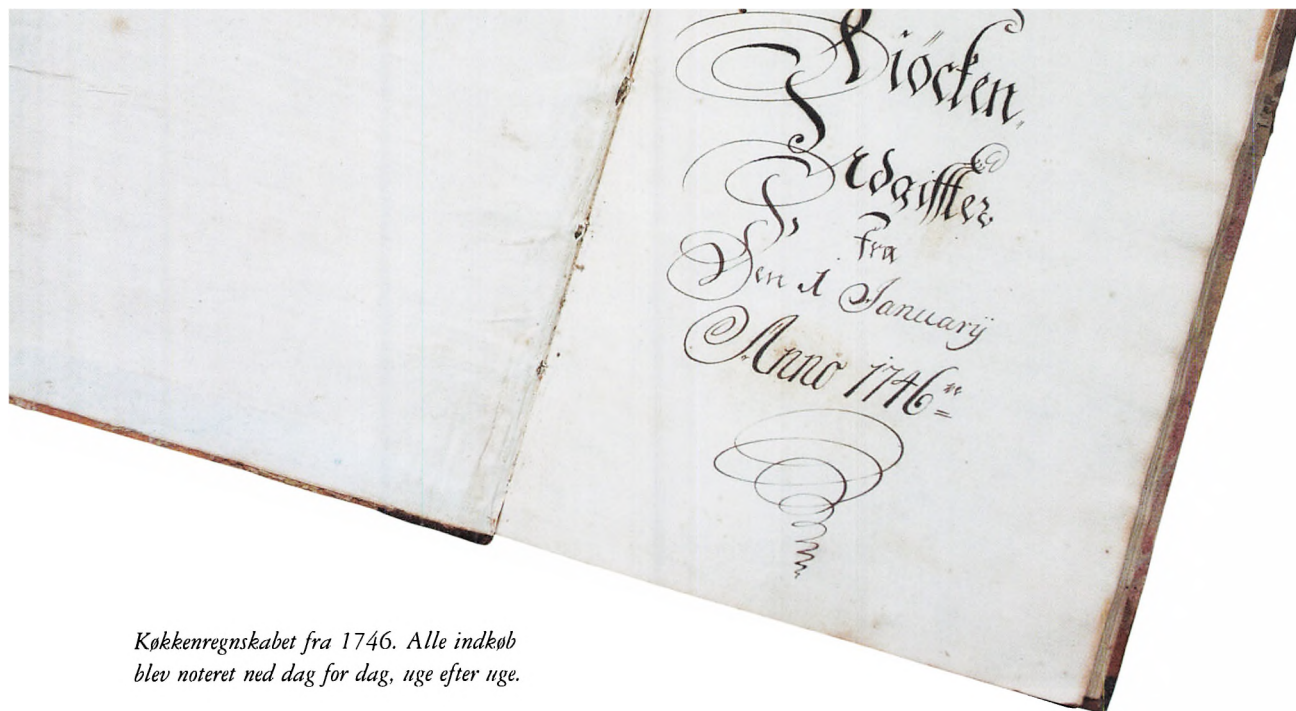 Kiöcken,
Udgiffter
Fra
Den 1 Januarÿ
Anno 1746
Køkkenregnskabet fra 1746. Alle indkøb
blev noteret ned dag for dag, uge efter uge.